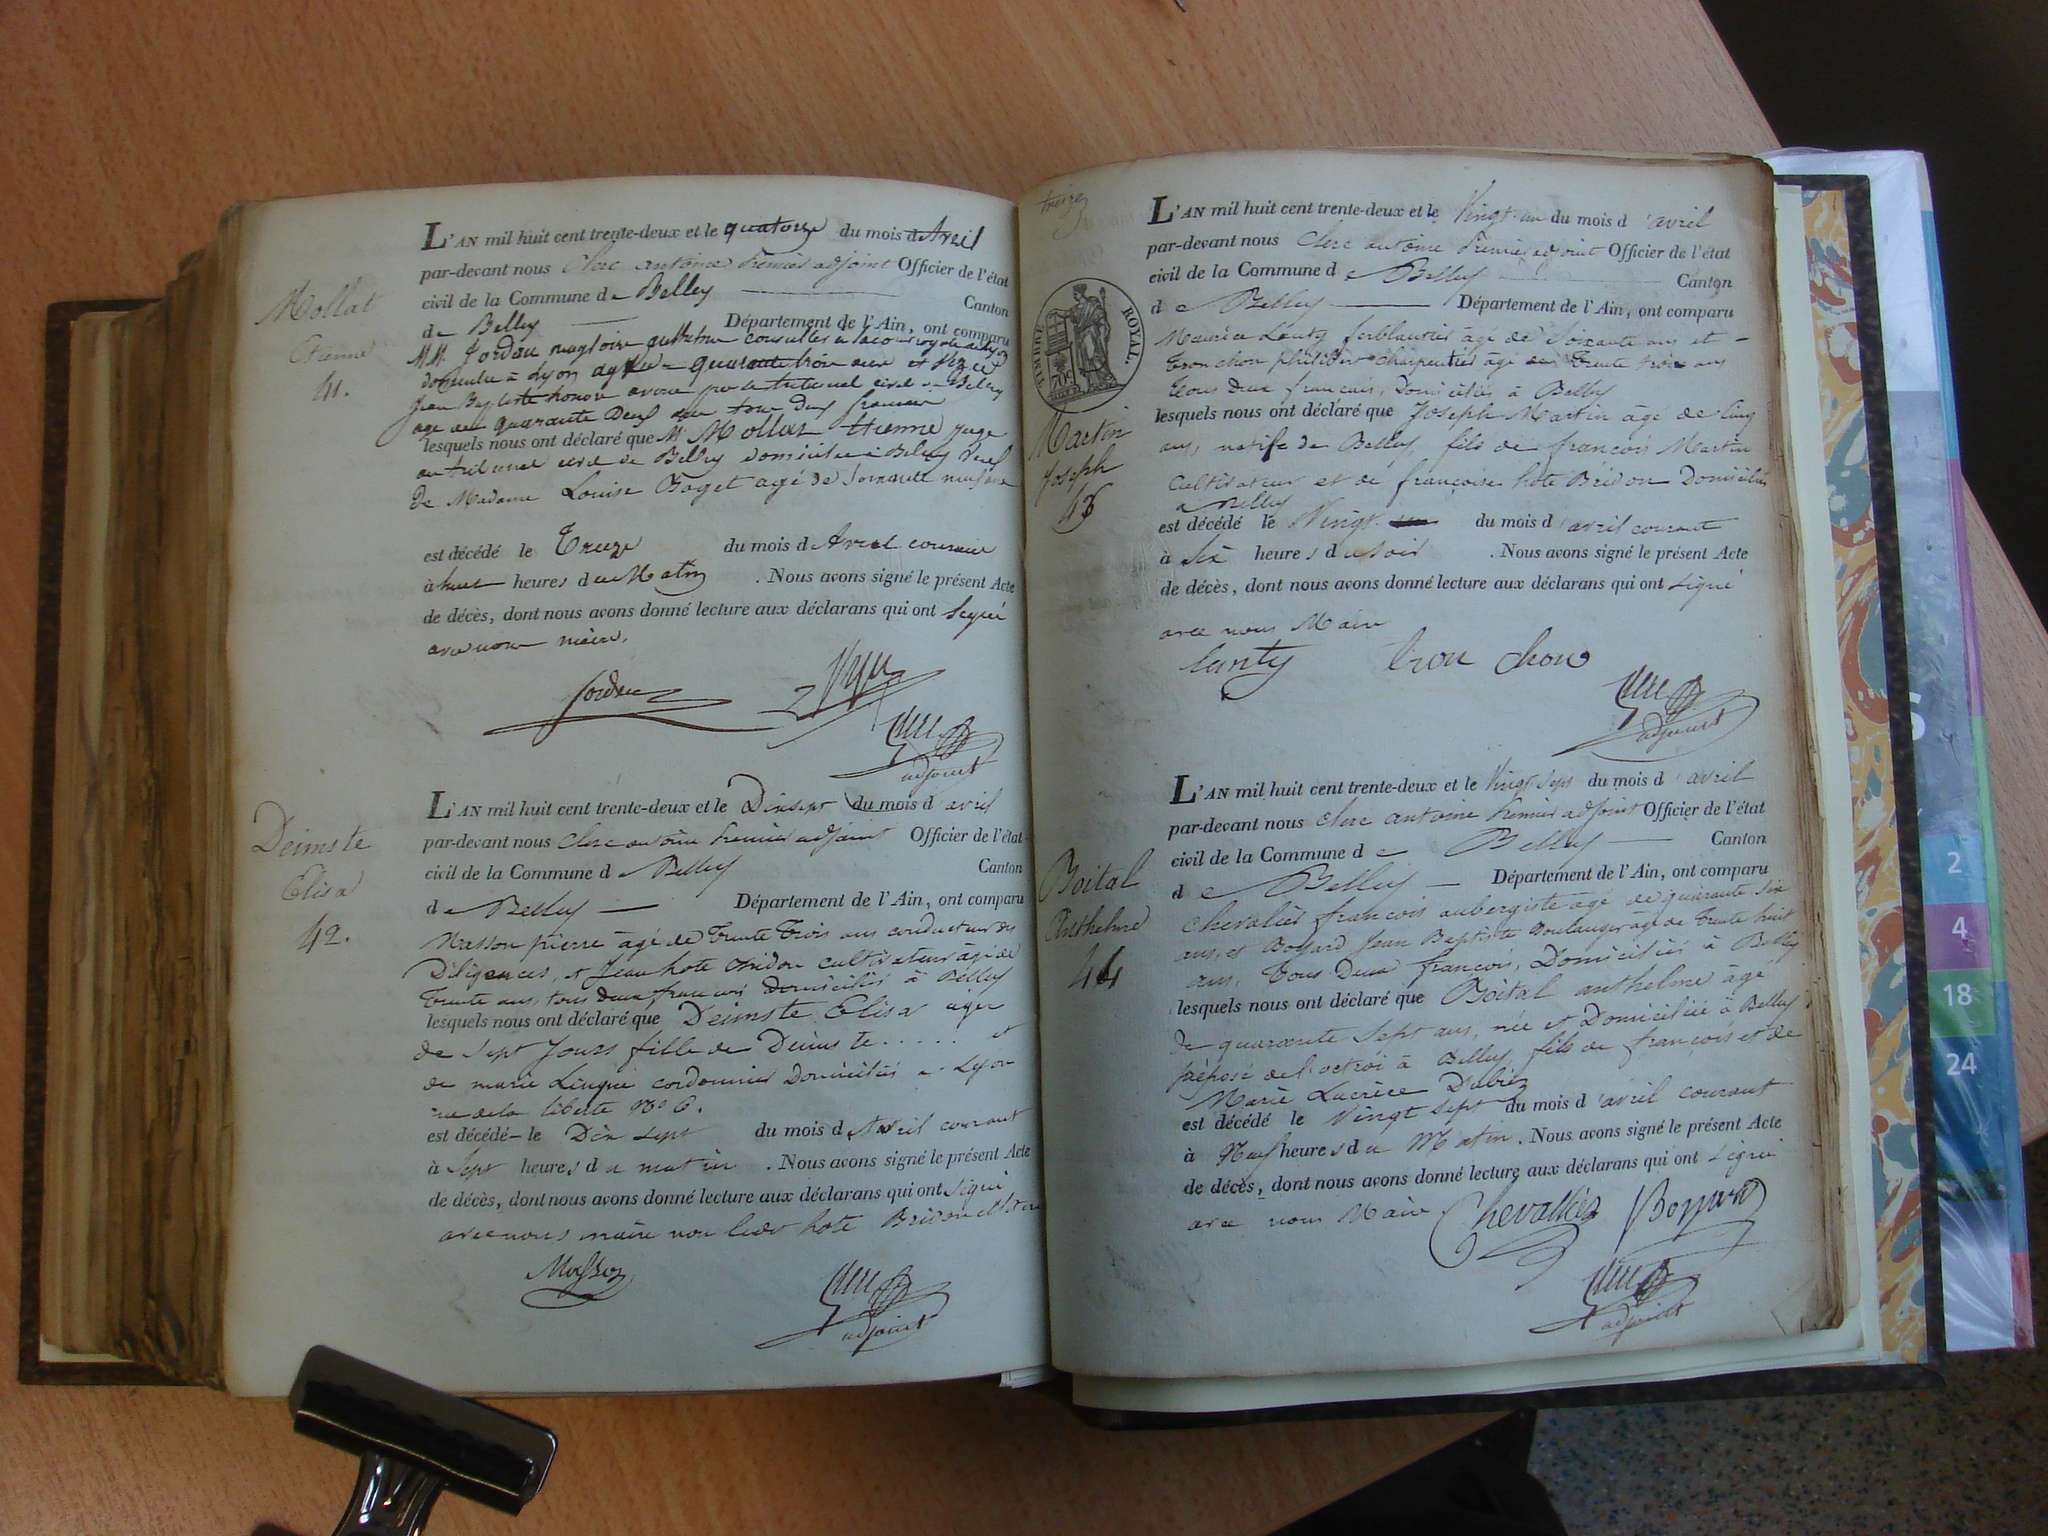 L'AN mil huit cent trente-deux et le quatorze du mois d'Avril
par-devant nous Clerc antoine premier adjoint Officier de l'état
civil de la Commune de Belley Canton
de Belley Département de l'Ain, ont comparu
MM. Jordan
domicilié à Lyon quarante trois ans et
Jean Baptiste honoré avoué Belley
age de quarante Deux tous Deux francais
lesquels nous ont déclaré que Mr Mollat Etienne juge
au tribunal civil de Belley Domicilié à Belley
De Madame Louise Boget agé de Soixante neuf ans
est décédé le Treize du mois d'Avril courant
à huit heures du Matin . Nous avons signé le présent Acte
de décès, dont nous avons donné lecture aux déclarans qui ont Signé
avec nous maire.
Jordan
adjoint
Mollat
Etienne
41.
L'AN mil huit cent trente-deux et le Dix sept du mois d'avril
par-devant nous Clerc antoine premier adjoint Officier de l'état
civil de la Commune de Belley Canton
de Belley Département de l'Ain, ont comparu
Masson pierre âgé de Trente Trois ans conducteur des
Diligences, et Jean hote Bridon cultivateur âgé de
Trente ans, tous deux francais Domiciliés à Belley
lesquels nous ont déclaré que Deimste Elisa
de Sept Jours fille de Deimste ..... et
de marie Domiciliés a Lyon
rue de la liberté No 6.
est décédé le Dix sept du mois d'Avril courant
à Sept heures du matin . Nous avons signé le présent Acte
de décès, dont nous avons donné lecture aux déclarans qui ont signé
avec nous maire non ledit hote Bridon
Masson
adjoint
Deimste
Elisa
42.
treize
TIMBRE ROYAL.
70c
L'AN mil huit cent trente-deux et le Vingt-un du mois d'avril
par-devant nous Clerc antoine premier adjoint Officier de l'état
civil de la Commune de Belley Canton
de Belley Département de l'Ain, ont comparu
Maurice Lanty ferblantier âgé de Soixante ans et
Tronchon philibert charpentier âgé de Trente trois ans
tous Deux francais, Domiciliés à Belley
lesquels nous ont déclaré que Joseph Martin âgé de Cinq
ans, natif de Belley, fils de françois Martin
Cultivateur et de françoise hote Bridon Domiciliés
a Belley
est décédé le Vingt du mois d'avril courant
à Six heures du soir . Nous avons signé le présent Acte
de décès, dont nous avons donné lecture aux déclarans qui ont signé
avec nous Maire
Lanty Tron chon
adjoint
Martin
Joseph
43
L'AN mil huit cent trente-deux et le Vingt sept du mois d'avril
par-devant nous Clerc antoine premier adjoint Officier de l'état
civil de la Commune de Belley Canton
de Belley Département de l'Ain, ont comparu
Chevalier françois aubergiste âgé de quarante six
ans, et Boyard Jean Baptiste Boulanger âgé de Trente huit
ans, tous Deux françois, Domiciliés à Belley
lesquels nous ont déclaré que Boital anthelme âgé
De quarante Sept ans, née et Domiciliée à Belley
préposé de l'octroi à Belley, fils de françois et de
Marie Lucrèce
est décédé le Vingt sept du mois d'avril courant
à Neuf heures du Matin . Nous avons signé le présent Acte
de décès, dont nous avons donné lecture aux déclarans qui ont signé
avec nous Maire
Chevallier Boyard
adjoint
Boital
Anthelme
44
S
2
4
18
24